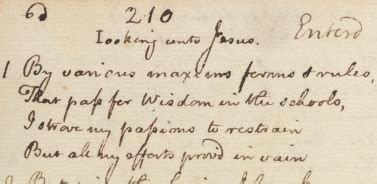 6d 210 Enterd
Looking unto Jesus.
1 By various maxims forms & rules,
That pass for Wisdom in the schools,
I strove my passions to restrain
But all my efforts prov'd in vain
2 But